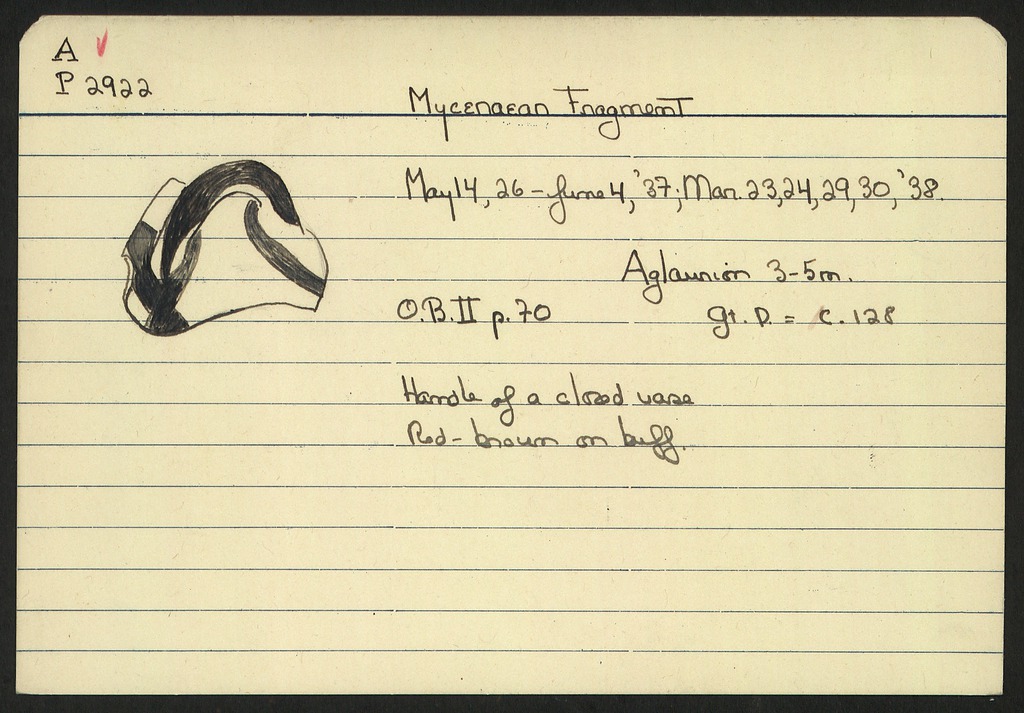 A ✓
P 2922
Mycenaean Fragment
May 14, 26 - June 4, '37; Mar. 23, 24, 29, 30, '38.
Aglaurion 3-5m.
O.B. II p. 70
gt. D. = c. .128
Handle of a closed vase
Red-brown on buff.